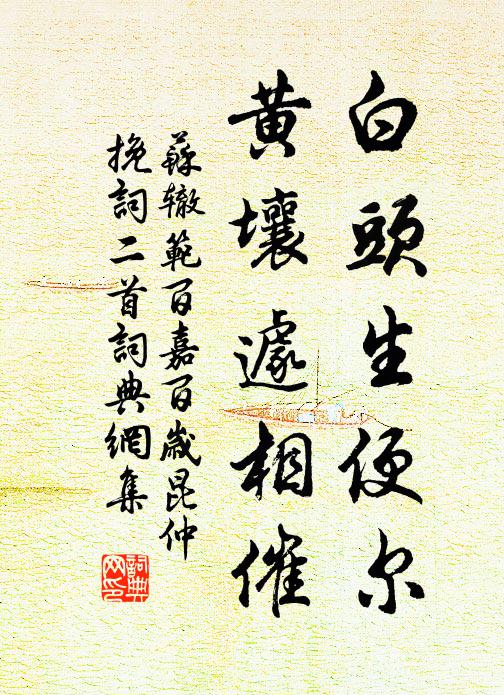 白頭生便尔
黄壤遽相催
蘇辙範百嘉百歲昆仲
挽詞二首詞典網集
詞典
网印